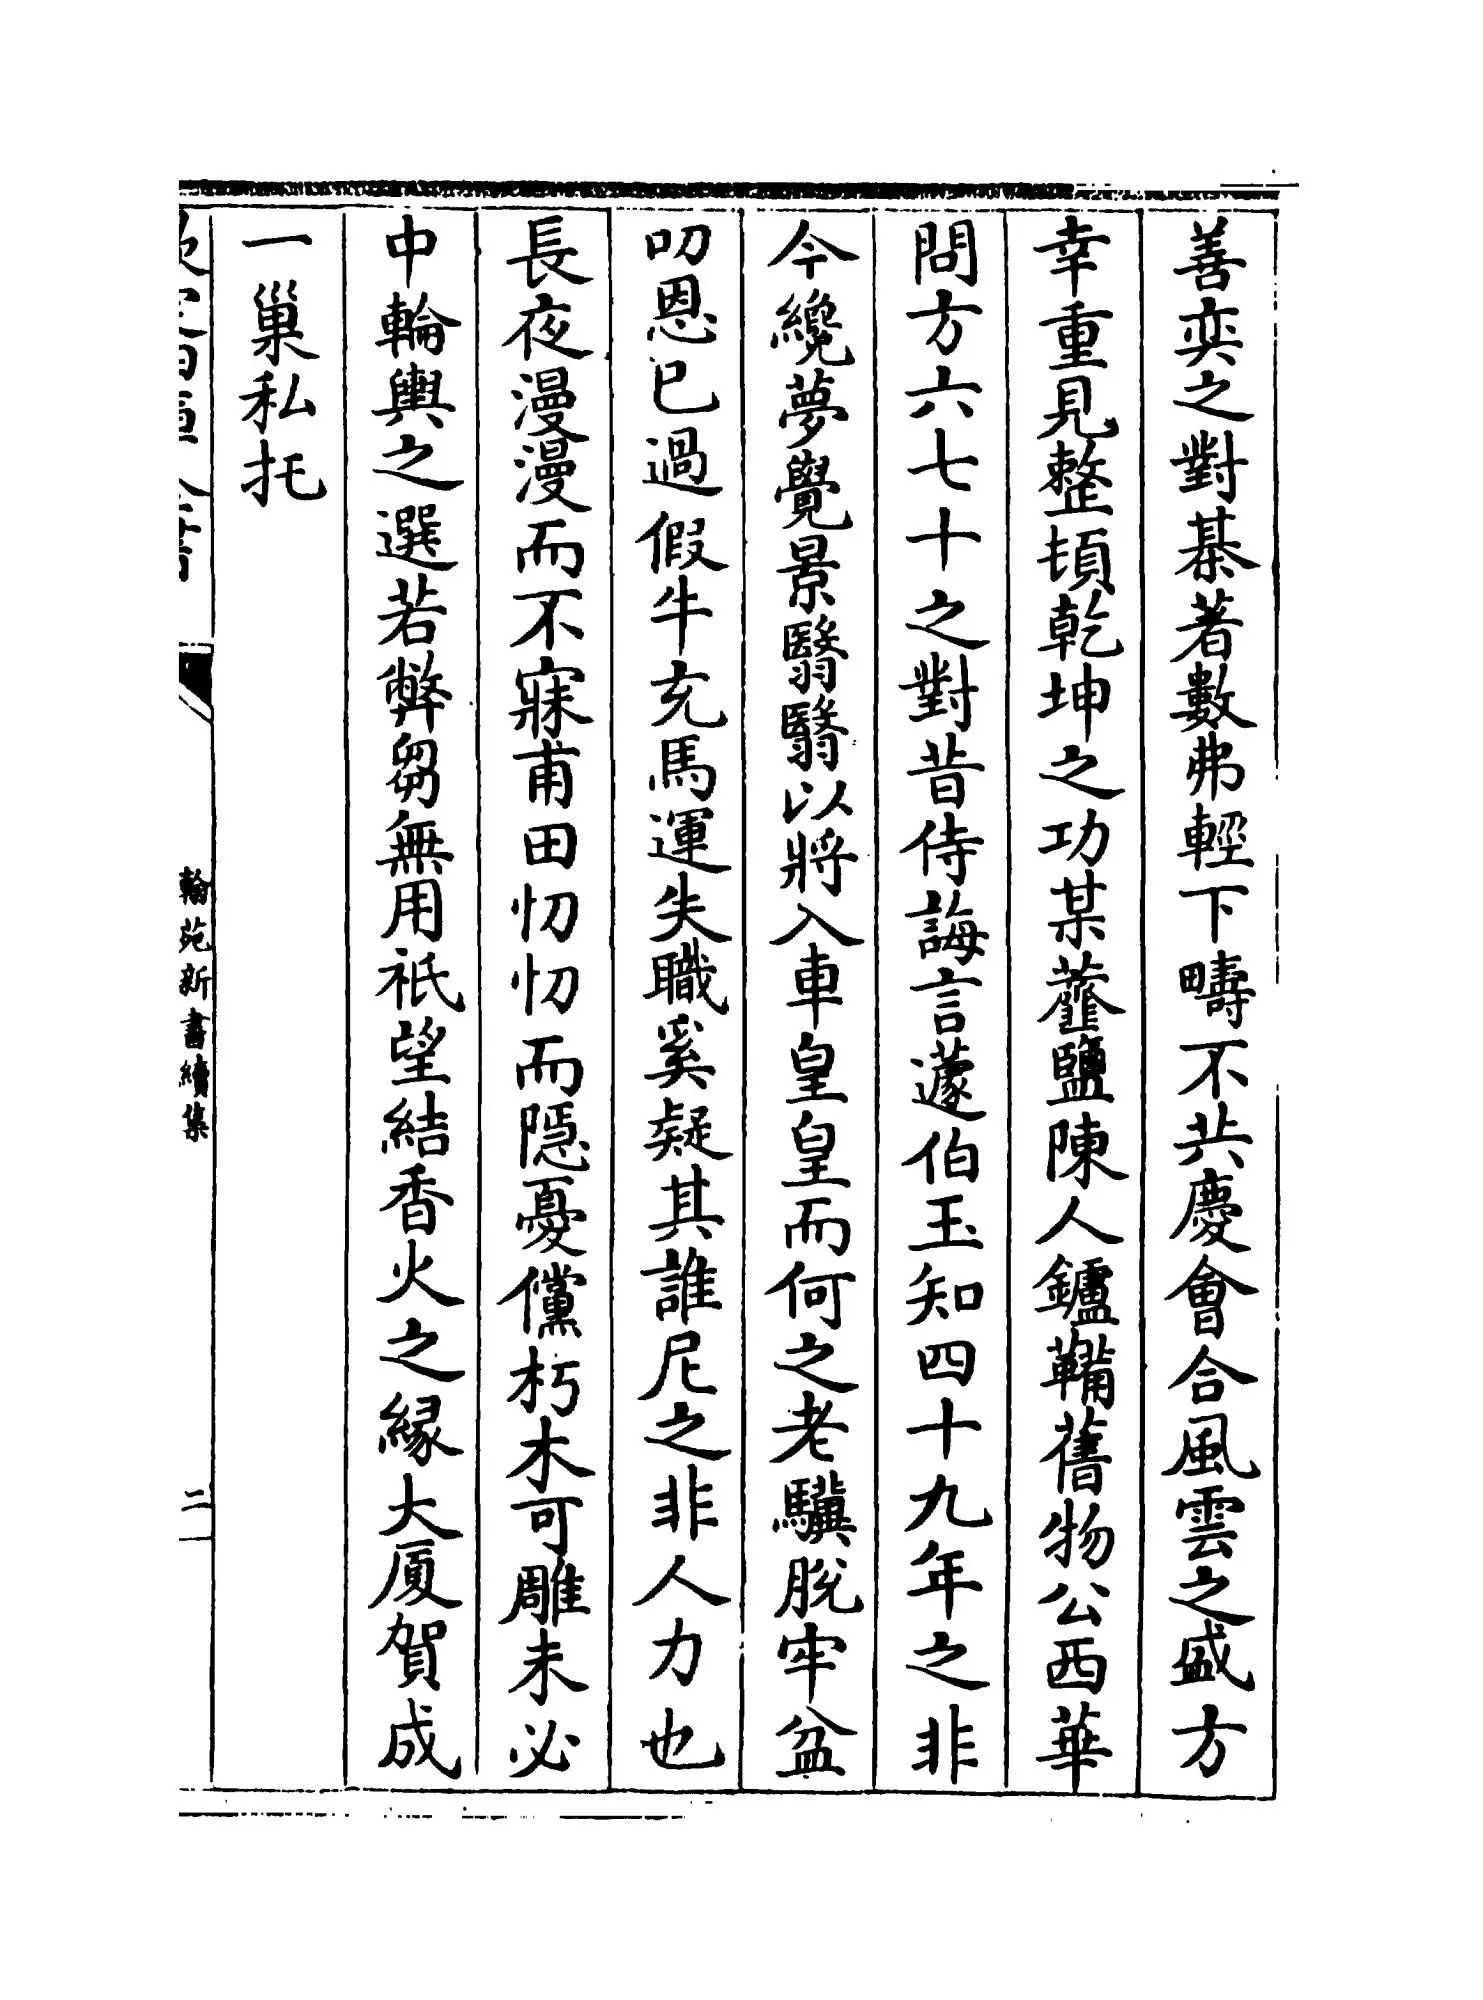 善奕之對棊著數弗輕下疇不共慶會合風雲之盛方
幸重見整頓乾坤之功某虀鹽陳人鑪鞴舊物公西華
問方六七十之對昔侍誨言蘧伯玉知四十九年之非
今纔夢覺景翳翳以將入車皇皇而何之老驥脫牢盆
叨恩已過假牛充馬運失職奚疑其誰尼之非人力也
長夜漫漫而不寐甫田忉忉而隠憂儻朽木可雕未必
中輪輿之選若弊芻無用祇望結香火之緣大厦賀成
一巢私托
翰苑新書續集
二